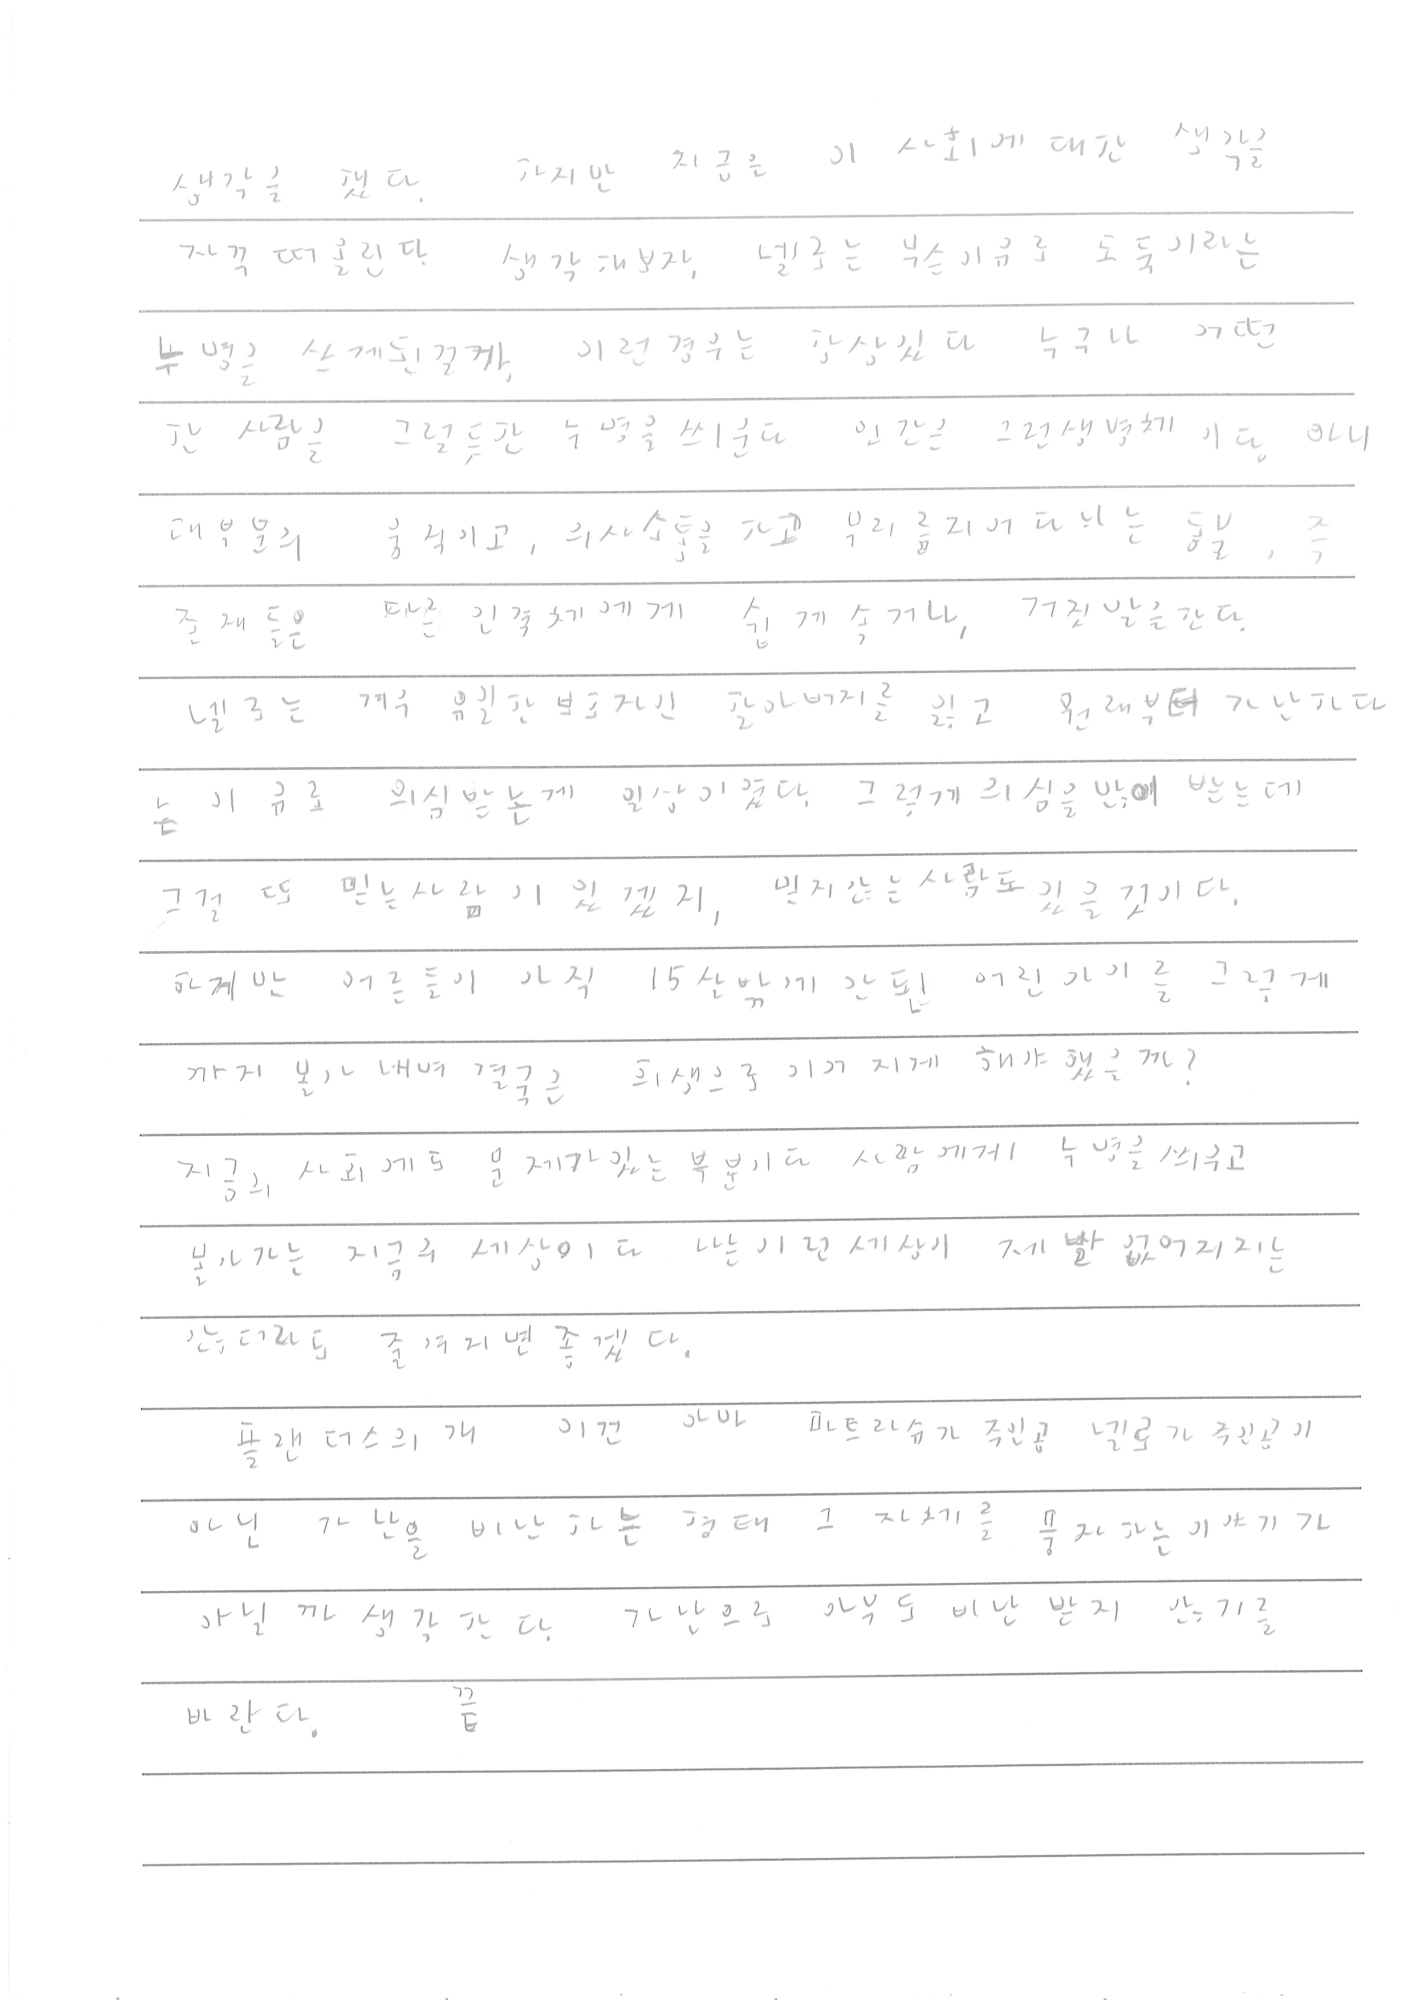 생각을 했다. 하지만 지금은 이 사회에 대한 생각을
자꾹 떠올린다. 생각해보자, 넬로는 무슨이유로 도둑이라는
누명을 쓰게된걸까, 이런경우는 항상있다 누구나 어떤
한 사람을 그럴듯한 누명을 씌운다 인간은 그런생명체 이다. 아니
대부분의 움직이고, 의사소통을 하고 무리를지어다니는 동물, 즉
존재들은 다른 인격체에게 쉽게 속거나, 거짓말을한다.
넬로는 겨우 유일한 보호자인 할아버지를 잃고 원래부터 가난하다
는 이유로 의심받는게 일상이였다. 그렇게 의심을 많이 받는데
그걸 또 믿는사람이 있겠지, 믿지않는사람도 있을것이다.
하지만 어른들이 아직 15살밖에 안된 어린아이를 그렇게
까지 몰아내며 결국은 희생으로 이어지게 해야했을까?
지금의 사회에도 문제가있는 부분이다 사람에게 누명을 씌우고
몰아가는 지금의 세상이다 나는이런세상이 제발 없어지지는
않더라도 줄여지면좋겠다.
플랜더스의개 이건 아마 파트라슈가 주인공 넬로가 주인공이
아닌 가난을 비난하는 형태 그 자체를 풍자하는이야기가
아닐까 생각한다. 가난으로 아무도 비난 받지 않기를
바란다. 끝